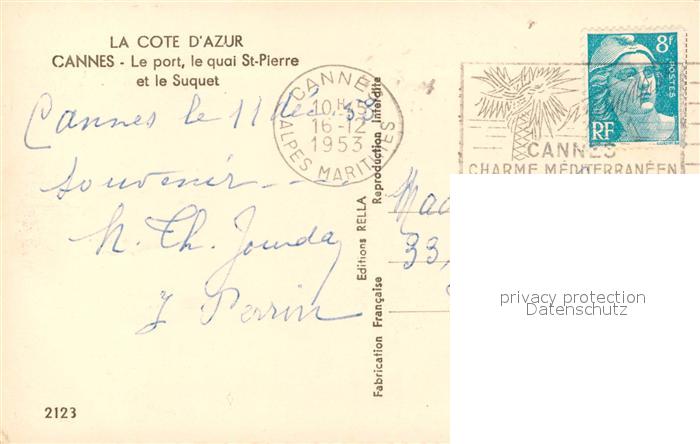 LA COTE D'AZUR
CANNES - Le port, le quai St-Pierre
et le Suquet
Cannes le 11 déc. 53
souvenir - - -
M. Th. Jourda
J Perrin
2123
CANNES
10H
16-12
1953
ALPES MARITIMES
Reproduction interdite
Editions RELLA
Fabrication Française
8f
POSTES
RF
CANNES
CHARME MÉDITERRANÉEN
33,
privacy protection
Datenschutz